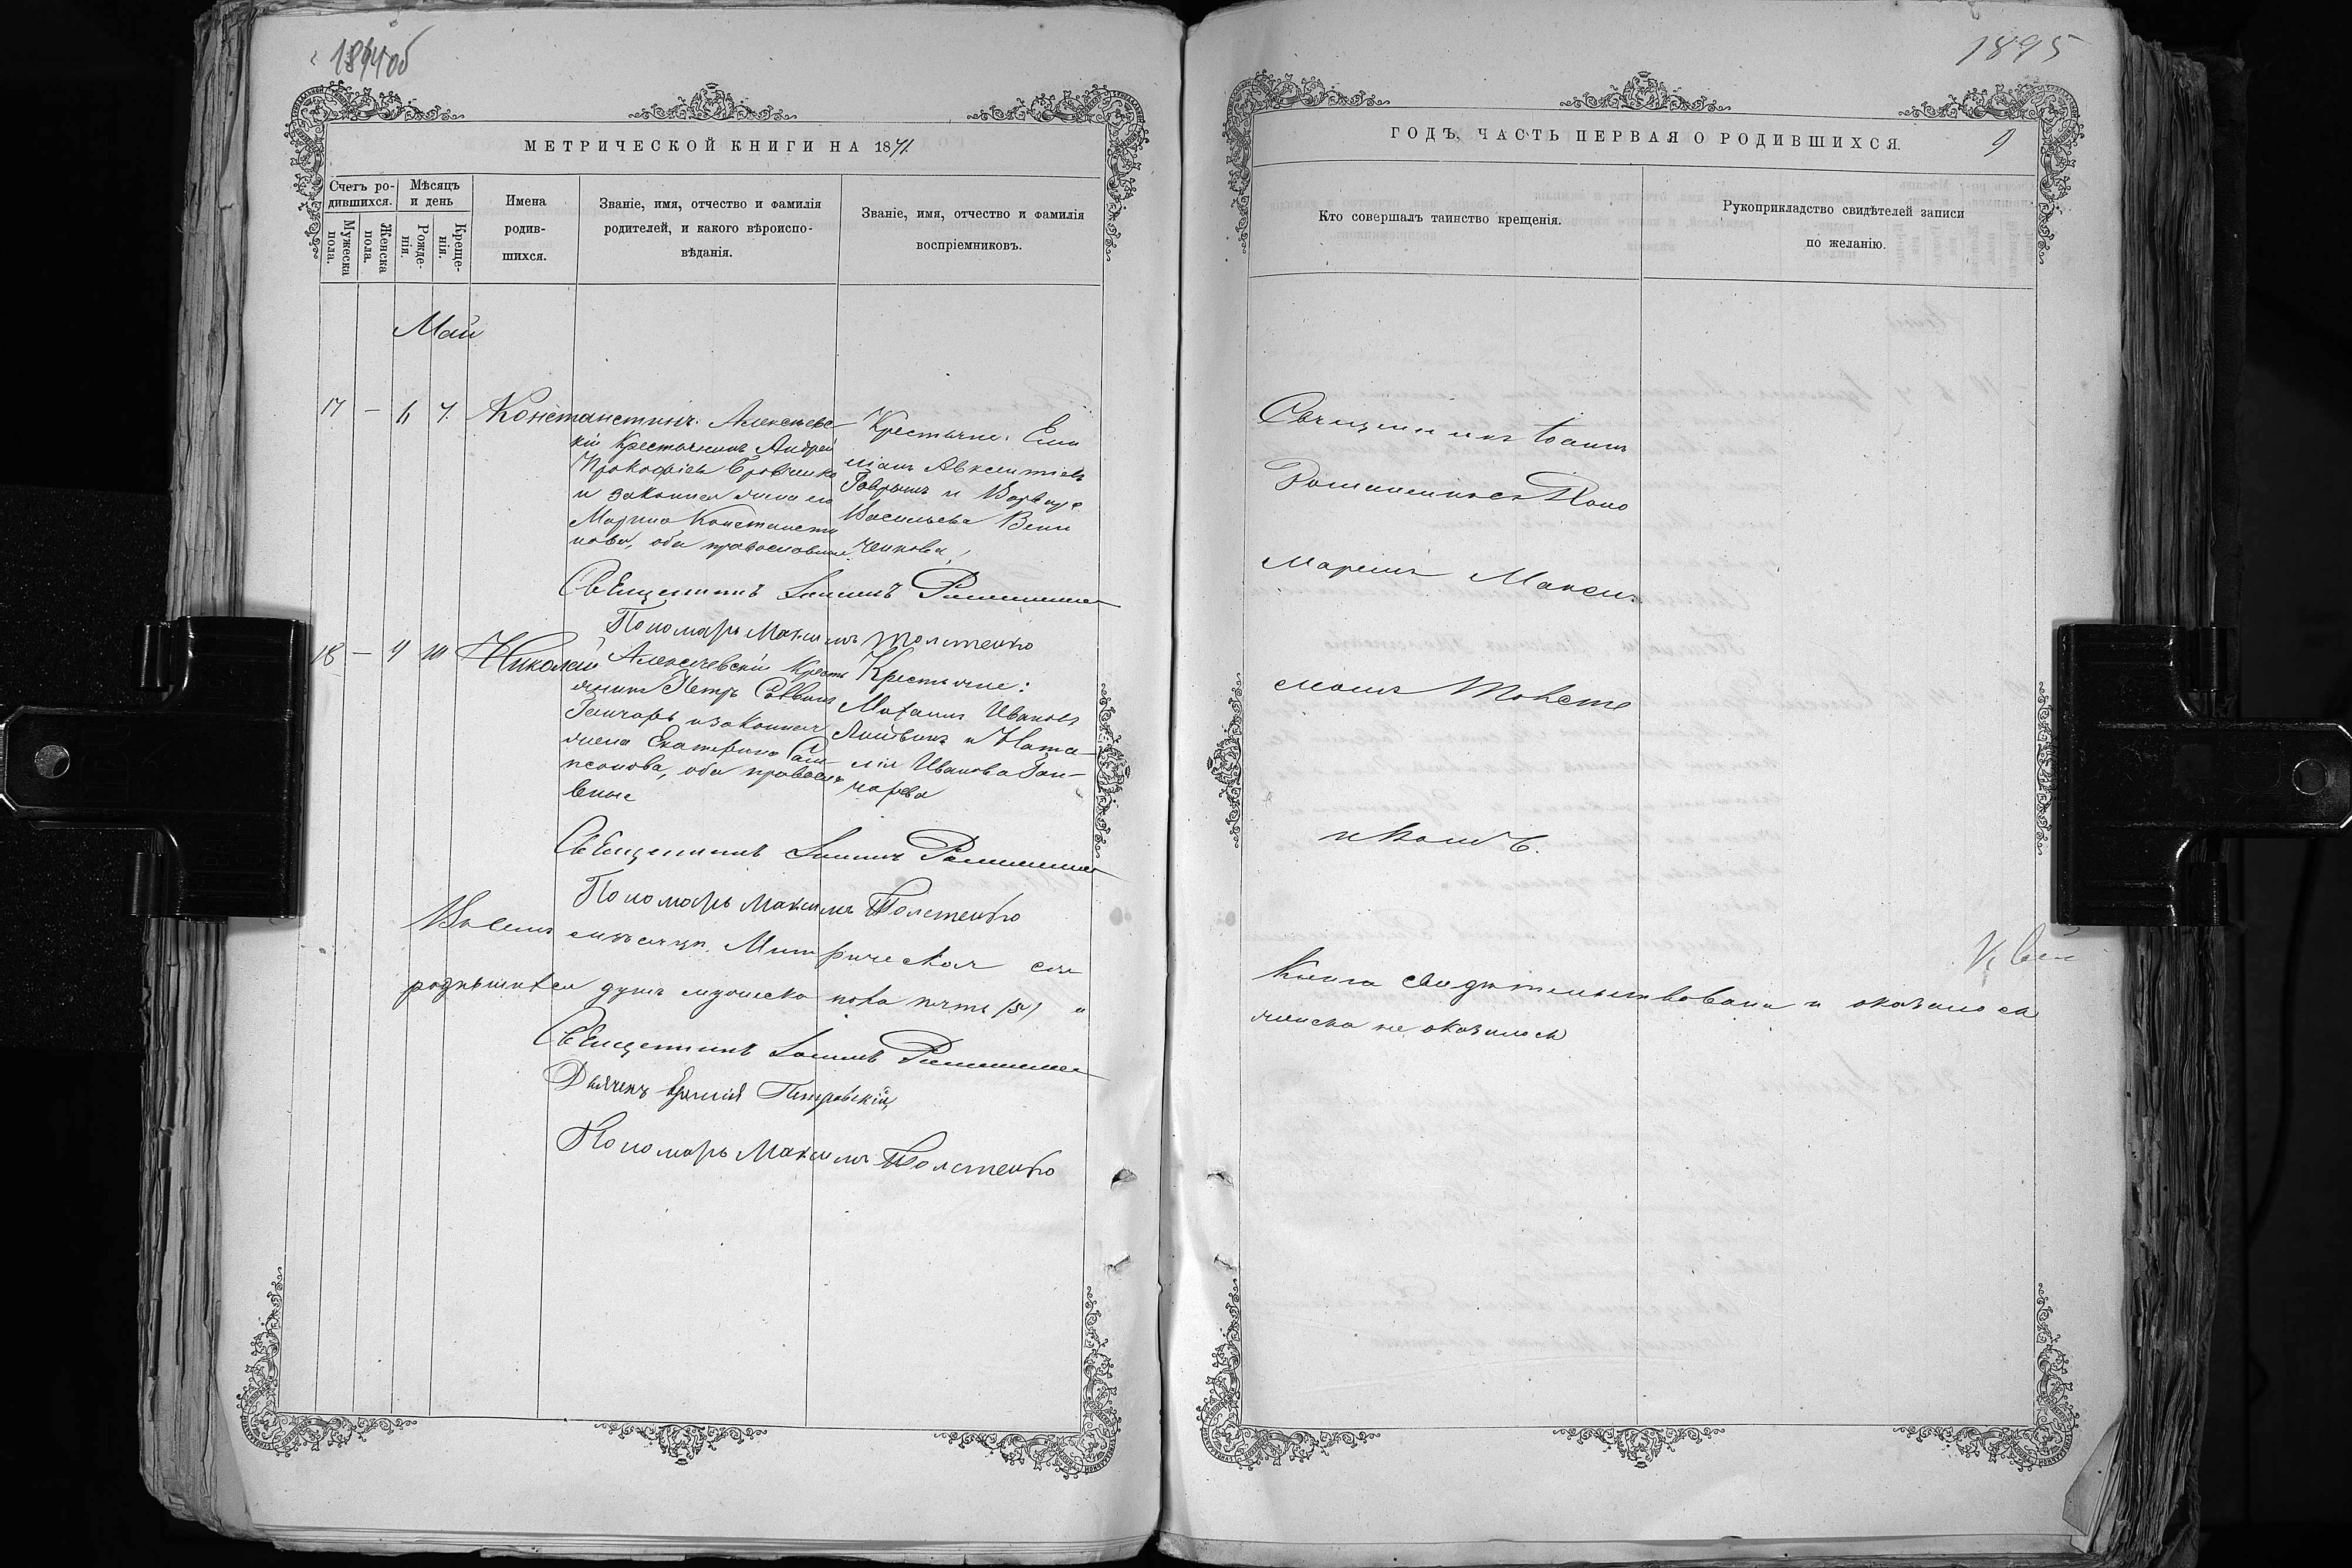 1894об
МЕТРИЧЕСКОЙ КНИГИ НА 1871.
Счетъ родившихся.
Мѣсяцъ и день
Мужеска пола.
Женска пола.
Рожденія.
Крещенія.
Имена родившихся.
Званіе, имя, отчество и фамилія родителей, и какого вѣроисповѣданія.
Званіе, имя, отчество и фамилія воспріемниковъ.
Май
17 — 6 7. Константинъ.
Алексѣевс-
кій Крестьянинъ Андрей
Прокофіевъ
и законная жена его
Марина Константи
нова, оба православные.
Крестьяне: Еми
ліанъ Авксентіевъ
и Варвара
Васильева
Священникъ Іоаннъ
Пономарь Максимъ Толстенко
18 — 9 10 Николай
Алексѣевскій Кресть
янинъ Петръ Саввинъ
Ганчаръ и законная
жена Екатерина Сам-
псонова, оба правосла
вные
Крестьяне:
Михаилъ Ивановъ
Литвинъ и Ната-
лія Иванова Ган-
чарева
Священникъ Іоаннъ
Пономарь Максимъ Толстенко
мѣсяцѣ Метрическая сія
родившихся душъ мужеска пола пять (5)
Священникъ Іоаннъ
Дьячекъ Петровскій
Пономарь Максимъ Толстенко
1895
ГОДЪ, ЧАСТЬ ПЕРВАЯ О РОДИВШИХСЯ.
9
Кто совершалъ таинство крещенія.
Рукоприкладство свидѣтелей записи по желанію.
Священникъ Іоаннъ
Поно
маремъ Макси
момъ Толсте
нкомъ.
Книга свидѣтельствована и оказалось
женска не оказалось